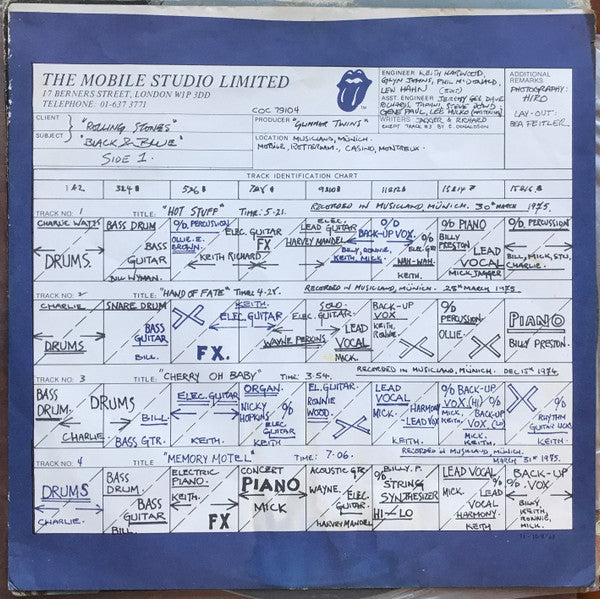 THE MOBILE STUDIO LIMITED
17 BERNERS STREET, LONDON W1P 3DD
TELEPHONE: 01-637 3771
TM
COC 79104
ENGINEER KEITH HARWOOD,
GLYN JOHNS, PHIL McDONALD,
LEW HAHN
ASST. ENGINEER JEREMY GEE, DAVE
GENE PAUL, LEE HULKO
WRITERS JAGGER & RICHARD
EXCEPT TRACK #3 BY E. DONALDSON
ADDITIONAL
REMARKS
PHOTOGRAPHY:
HIRO
LAY-OUT:
BEA FEITLER
CLIENT
"ROLLING STONES"
SUBJECT
"BLACK & BLUE"
SIDE 1.
PRODUCER "GLIMMER TWINS"
LOCATION MUSICLAND, MÜNICH.
MOBILE, ROTTERDAM, CASINO, MONTREUX.
TRACK IDENTIFICATION CHART
1&2 3&4 5&6 7&8 9&10 11&12 13&14 15&16
TRACK NO: 1 TITLE: "HOT STUFF" TIME: 5-21. RECORDED IN MUSICLAND, MÜNICH. 30TH MARCH 1975.
CHARLIE WATTS
DRUMS.
BASS DRUM
BASS
GUITAR
BILL WYMAN.
% PERCUSSION
OLLIE. E.
BROWN.
KEITH RICHARD
ELEC. GUITAR
FX
ELEC.
LEAD GUITAR
HARVEY MANDEL
O/D
BACK-UP VOX.
BILLY, RONNIE,
KEITH, MICK.
% ELEC. GTR
WAH-WAH.
KEITH.
% PIANO
BILLY
PRESTON
LEAD
VOCAL
MICK JAGGER
% PERCUSSION
BILL, MICK, STU,
CHARLIE.
TRACK NO: 2 TITLE: "HAND OF FATE" TIME: 4.28. RECORDED IN MUSICLAND, MÜNICH. 25TH MARCH 1975
CHARLIE
DRUMS
SNARE DRUM
BASS
GUITAR
BILL.
FX.
KEITH.
ELEC. GUITAR
WAYNE PERKINS
SOLO.
ELEC. GUITAR.
LEAD
VOCAL
MICK.
BACK-UP
VOX
KEITH,
RONNIE.
%
PERCUSSION
OLLIE.
PIANO
BILLY PRESTON.
TRACK NO: 3 TITLE: "CHERRY OH BABY" TIME: 3.54. RECORDED IN MUSICLAND, MÜNICH. DEC 15TH 1974.
BASS
DRUM.
CHARLIE
DRUMS
BILL
BASS GTR.
ELEC. GUITAR
KEITH.
ORGAN.
NICKY
HOPKINS
%
ELEC
GUITAR
KEITH
EL. GUITAR.
RONNIE
WOOD.
LEAD
VOCAL
MICK.
HARMONY
-LEAD VOX
KEITH.
% BACK-UP
VOX (HI) %
MICK,
KEITH.
BACK-UP
VOX (LO)
MICK.
KEITH.
%
RHYTHM
KEITH.
TRACK NO: 4 TITLE: "MEMORY MOTEL" TIME: 7.06. RECORDED IN MUSICLAND, MÜNICH.
MARCH 31ST 1975.
DRUMS
CHARLIE.
BASS
DRUM.
BASS
GUITAR
BILL
ELECTRIC
PIANO.
KEITH.
FX
CONCERT
PIANO
MICK
ACOUSTIC GTR
WAYNE.
ELEC.
GUITAR.
HARVEY MANDEL
BILLY. P.
%
STRING
SYNTHESIZER
HI-LO
LEAD VOCAL
MICK.
LEAD
VOCAL
HARMONY.
KEITH
BACK-UP
% VOX.
BILLY,
KEITH,
RONNIE,
MICK.